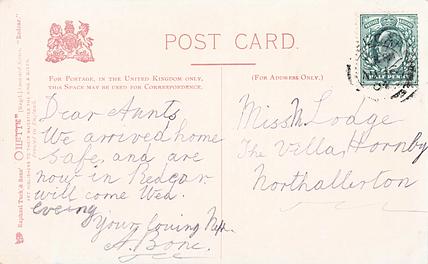 POST CARD.
FOR POSTAGE, IN THE UNITED KINGDOM ONLY,
THIS SPACE MAY BE USED FOR CORRESPONDENCE.
(FOR ADDRESS ONLY.)
Dear Aunts
We arrived home
safe, and are
now in Redcar
will come Wed.
eveing
Your loving Neph.
A. Bone.
Miss M. Lodge
The Villa, Hornby
Northallerton
HALF PENNY
Raphael Tuck & Sons' "OILETTE"